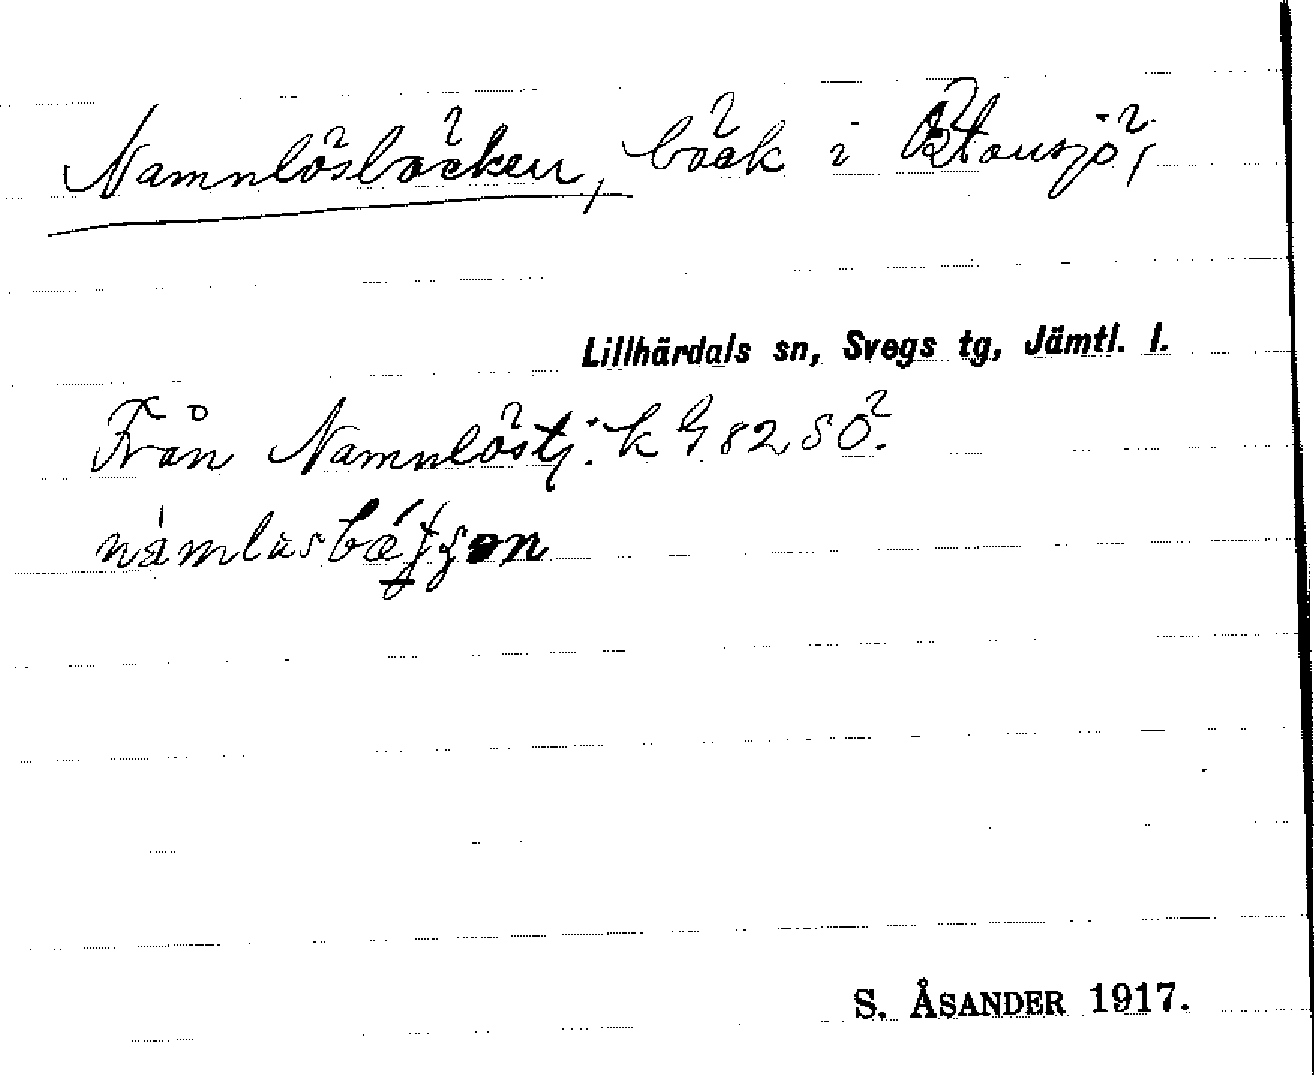 Namnlösbäcken, bäck i Östansjö,
Lillhärdals sn, Svegs tg, Jämtl. l.
Från Namnlöstj. k G 82 SÖ.
S. ÅSANDER 1917.